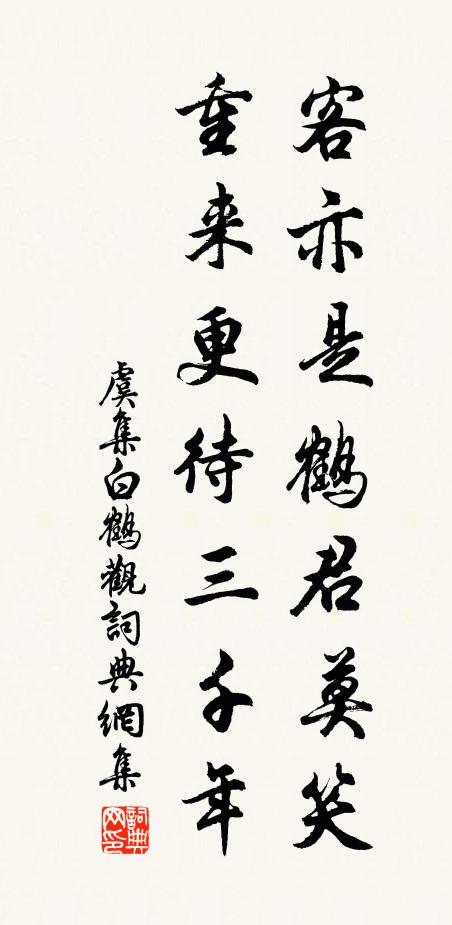 客亦是鶴君莫笑
重来更待三千年
虞集白鶴觀詞典網集
詞典网印